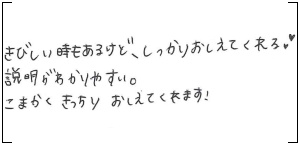 きびしい時もあるけど、しっかりおしえてくれる♥♥
説明がわかりやすい。
こまかくきっちりおしえてくれます！